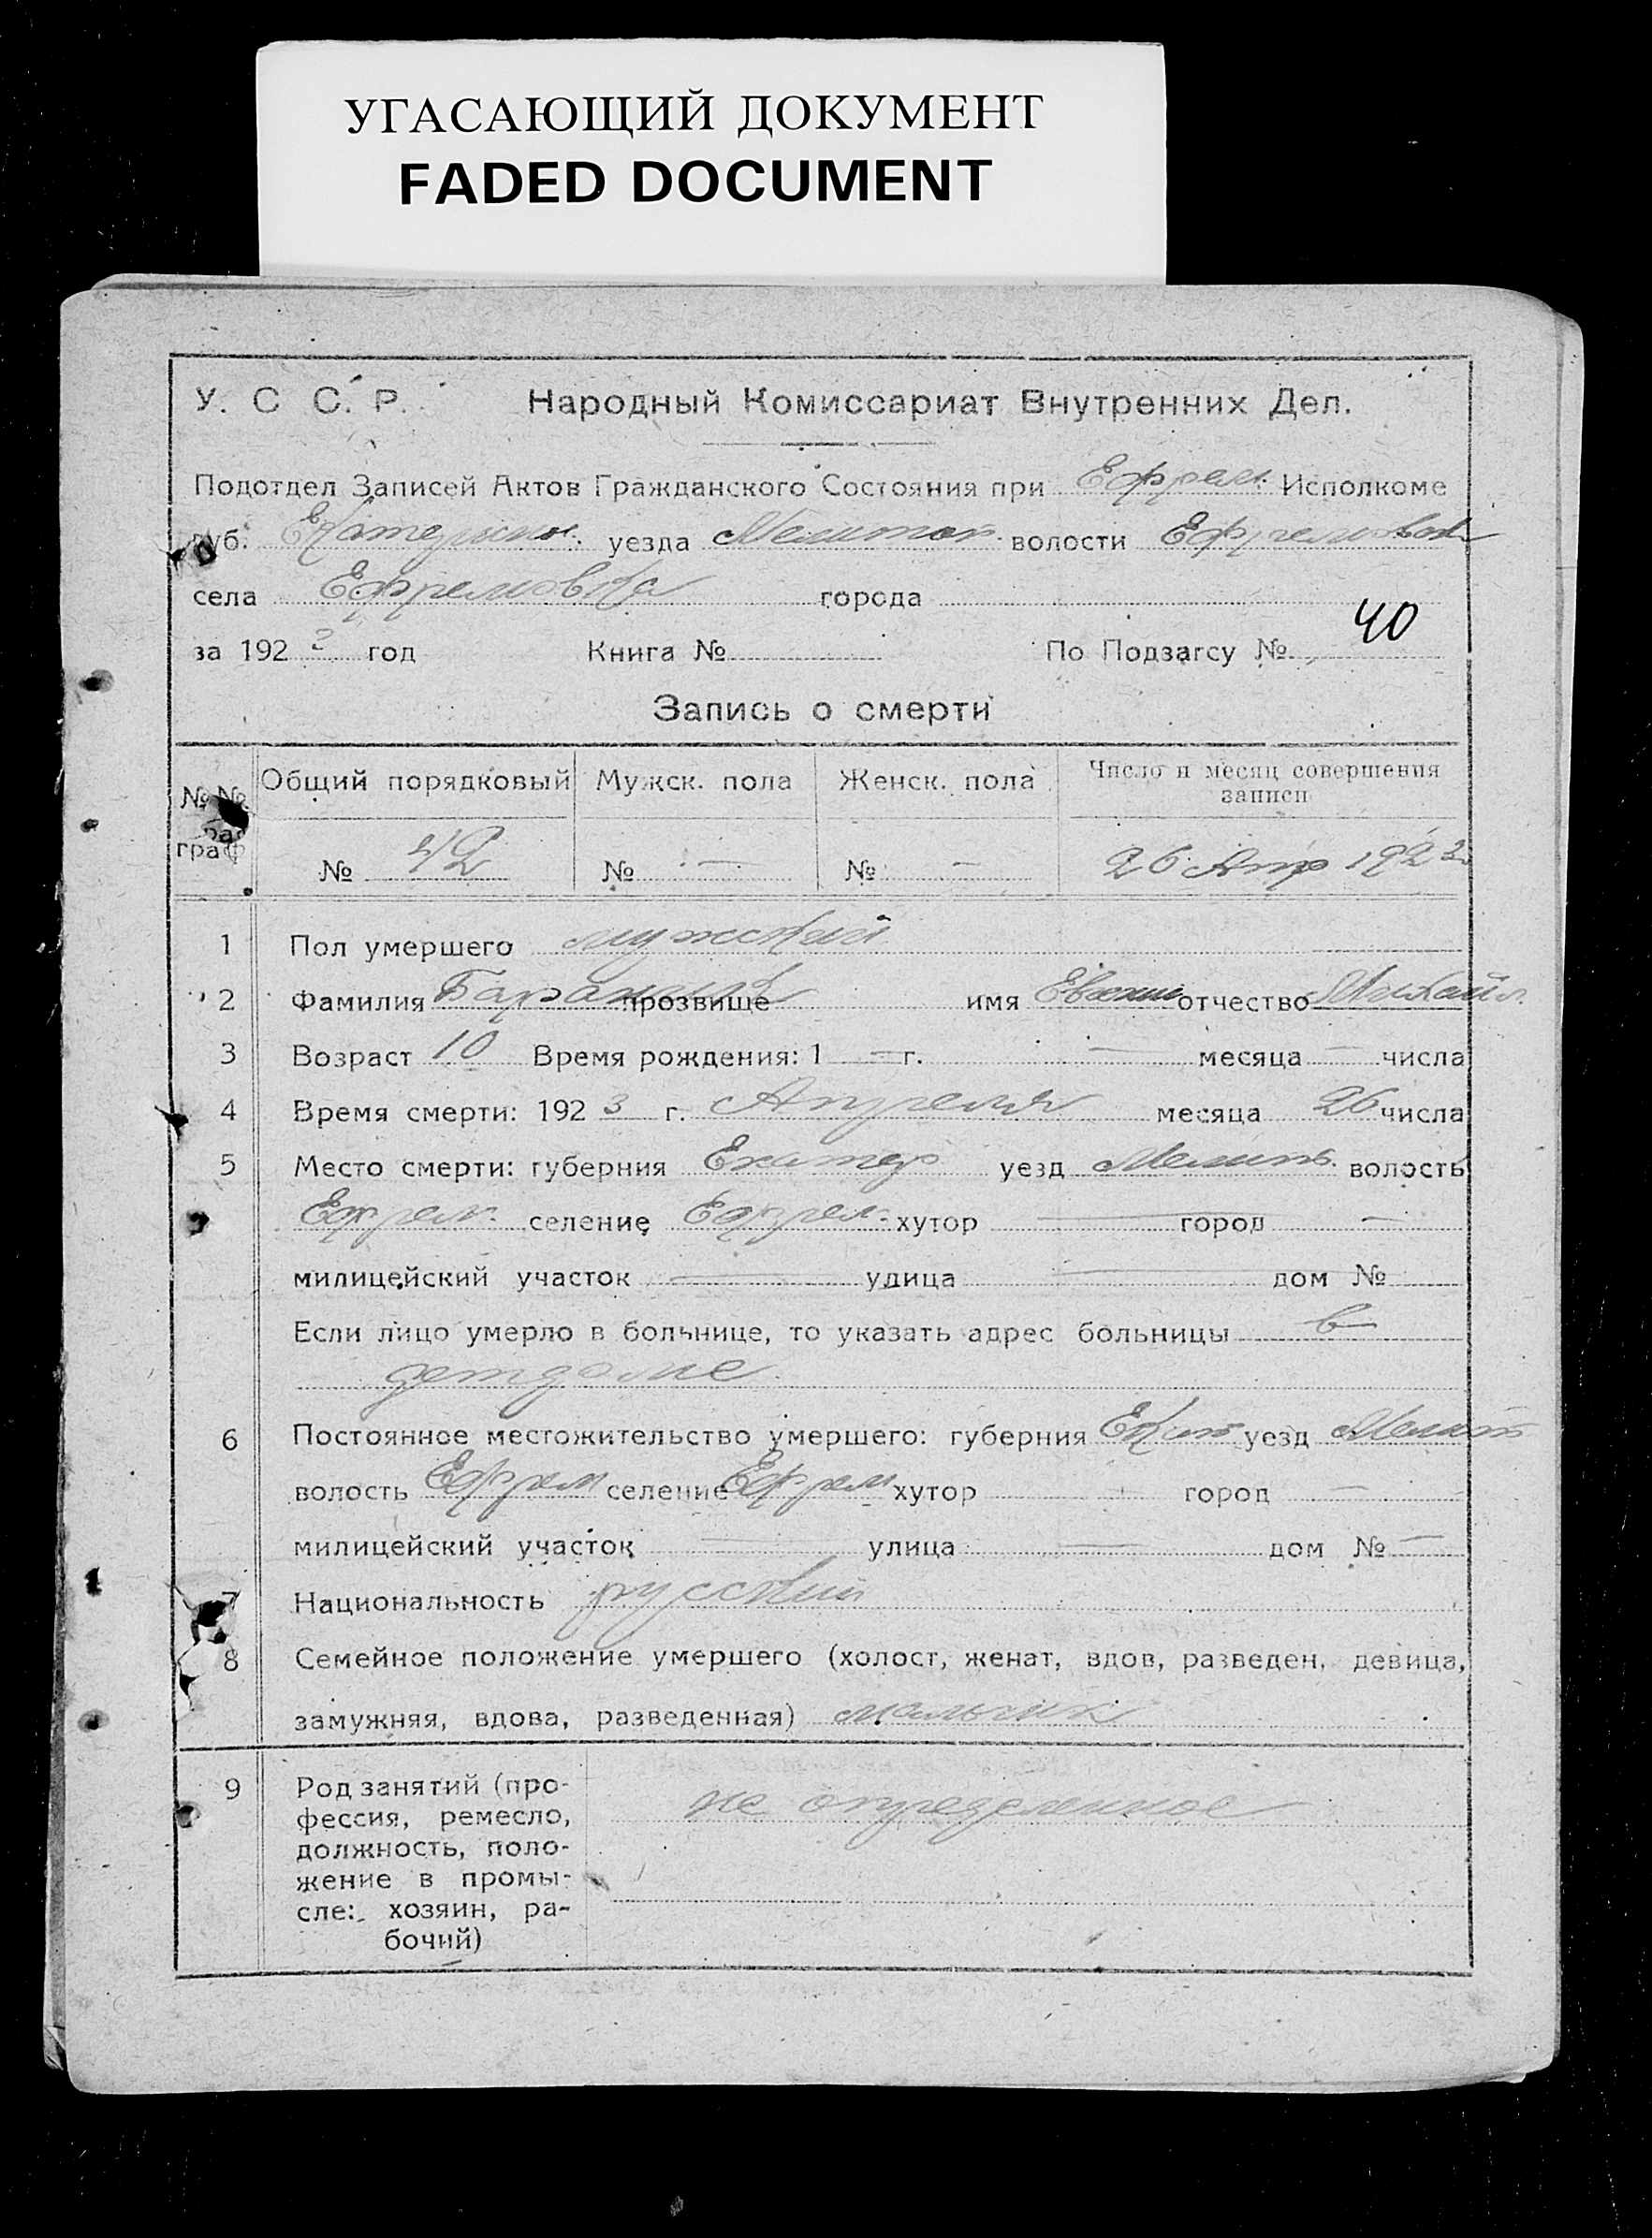 УГАСАЮЩИЙ ДОКУМЕНТ
FADED DOCUMENT
У. С С. Р. Народный Комиссариат Внутренних Дел.
Подотдел Записей Актов Гражданского Состояния при Ефрем. Исполкоме
губ. Екатерино. уезда Мелитоп. волости Ефремовск
села Ефремовка города
за 192 год Книга № По Подзагсу № 40
Запись о смерти
№№ граф Общий порядковый Мужск. пола Женск. пола Число и месяц совершения записи
№ 42 № — № — 26 Апр 1923
1 Пол умершего мужской
2 Фамилия прозвище имя отчество Михайл.
3 Возраст 10 Время рождения: 1 — г. — месяца — числа
4 Время смерти: 192 3 г. Апреля месяца 26 числа
5 Место смерти: губерния Екатер уезд Мелит. волость
Ефрем. селение Ефрем. хутор — город —
милицейский участок — улица — дом №
Если лицо умерло в больнице, то указать адрес больницы в
детдоме
6 Постоянное местожительство умершего: губерния Екат уезд Мелит
волость Ефрем селение Ефрем хутор — город —
милицейский участок — улица — дом № —
7 Национальность русский
8 Семейное положение умершего (холост, женат, вдов, разведен, девица,
замужняя, вдова, разведенная) мальчик
9 Род занятий (про-
фессия, ремесло,
должность, поло-
жение в промы-
сле: хозяин, ра-
бочий)
не определенное